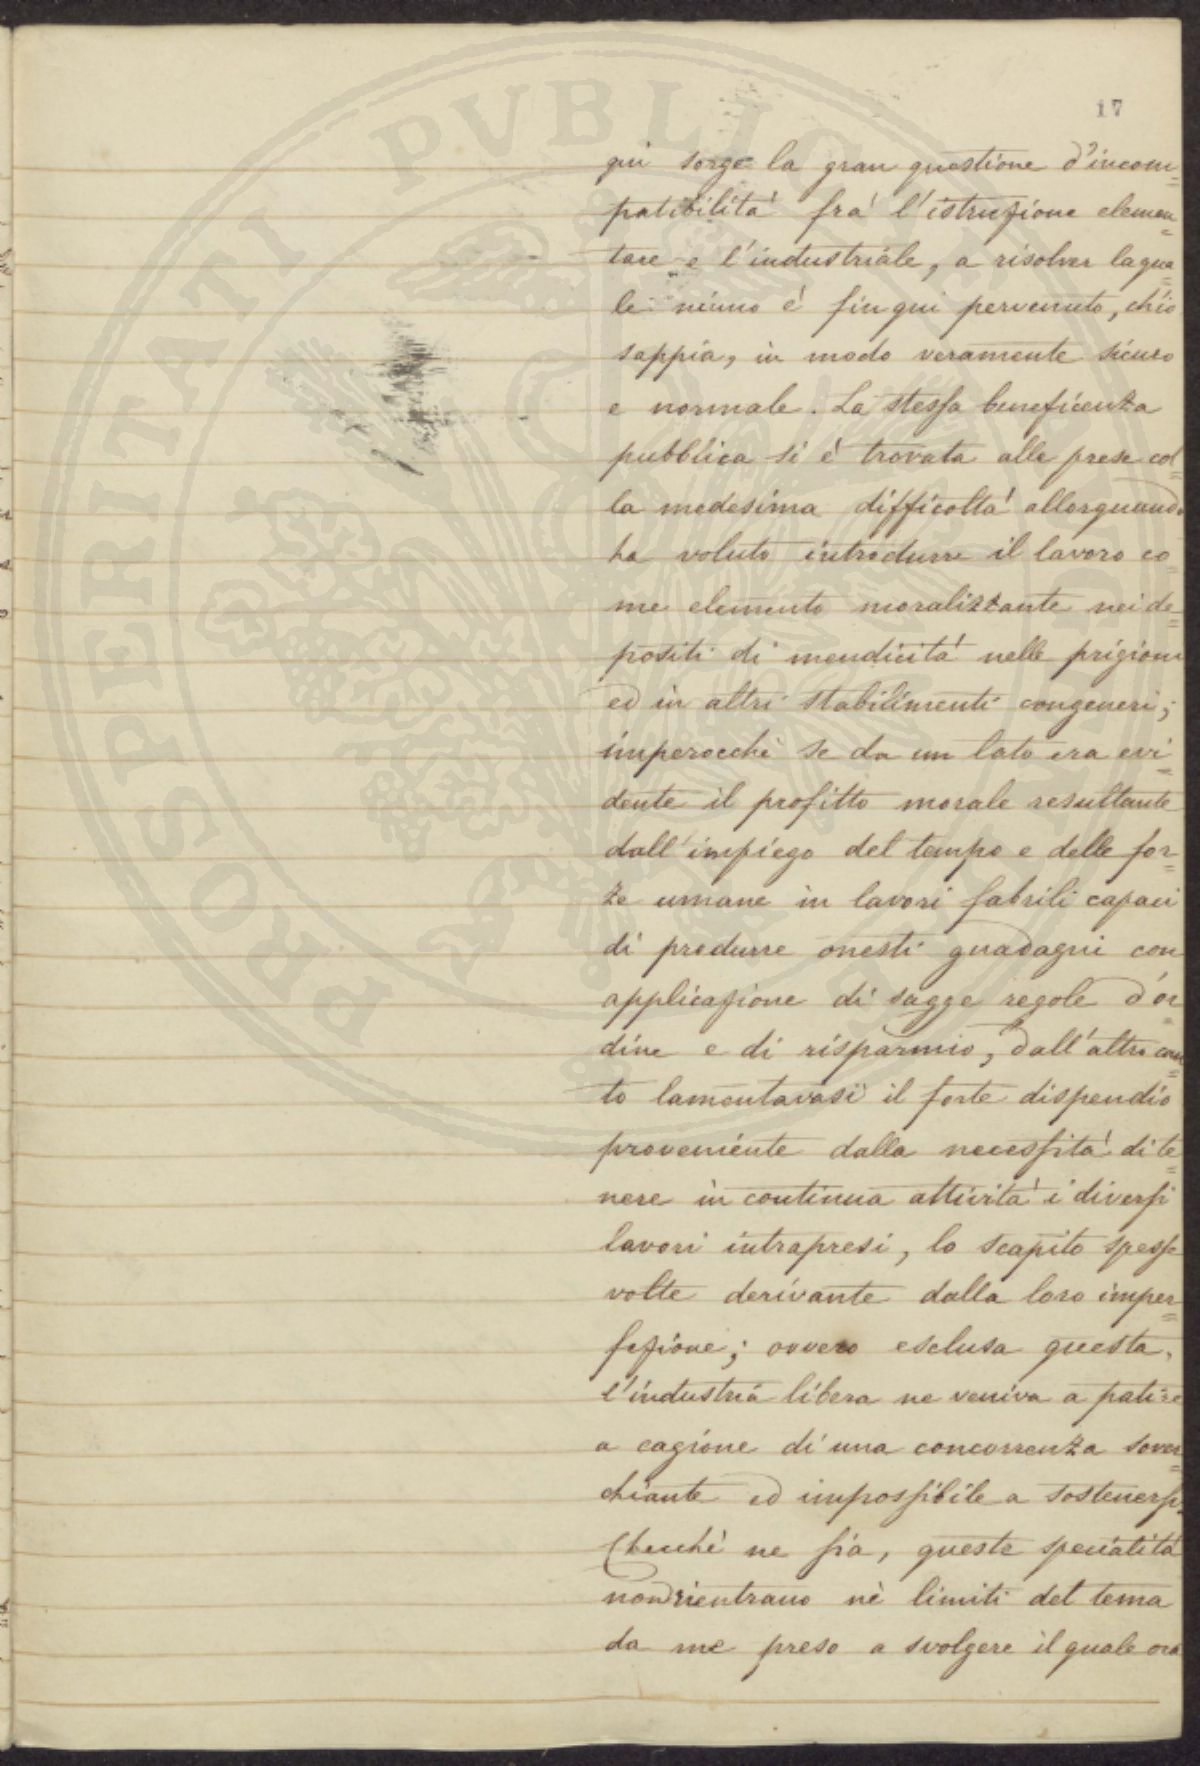 PROSPERITATI PVBLICAE AVGENDAE
17
qui sorge la gran questione d'incom=
patibilità frà l'istruzione elemen=
tare e l'industriale, a risolver laqua=
le niuno è finqui pervenuto, ch'io
sappia, in modo veramente sicuro
e normale. La stessa beneficenza
pubblica si è trovata alle prese col=
la medesima difficoltà allorquando
ha voluto introdurre il lavoro co=
me elemento moralizzante nei de=
positi di mendicità nelle prigioni
ed in altri stabilimenti congeneri;
imperocchè se da un lato era evi=
dente il profitto morale resultante
dall'impiego del tempo e delle for=
ze umane in lavori fabrili capaci
di produrre onesti guadagni con
applicazione di sagge regole d'or=
dine e di risparmio, dall'altro can=
to lamentavasi il forte dispendio
proveniente dalla necessità di te=
nere in continua attività i diversi
lavori intrapresi, lo scapito spesse
volte derivante dalla loro imper=
fezione; ovvero esclusa questa,
l'industria libera ne veniva a patire
a cagione di una concorrenza sover=
chiante ed impossibile a sostenersi.
Checchè ne sia, queste specialità
non rientrano nè limiti del tema
da me preso a svolgere il quale ora